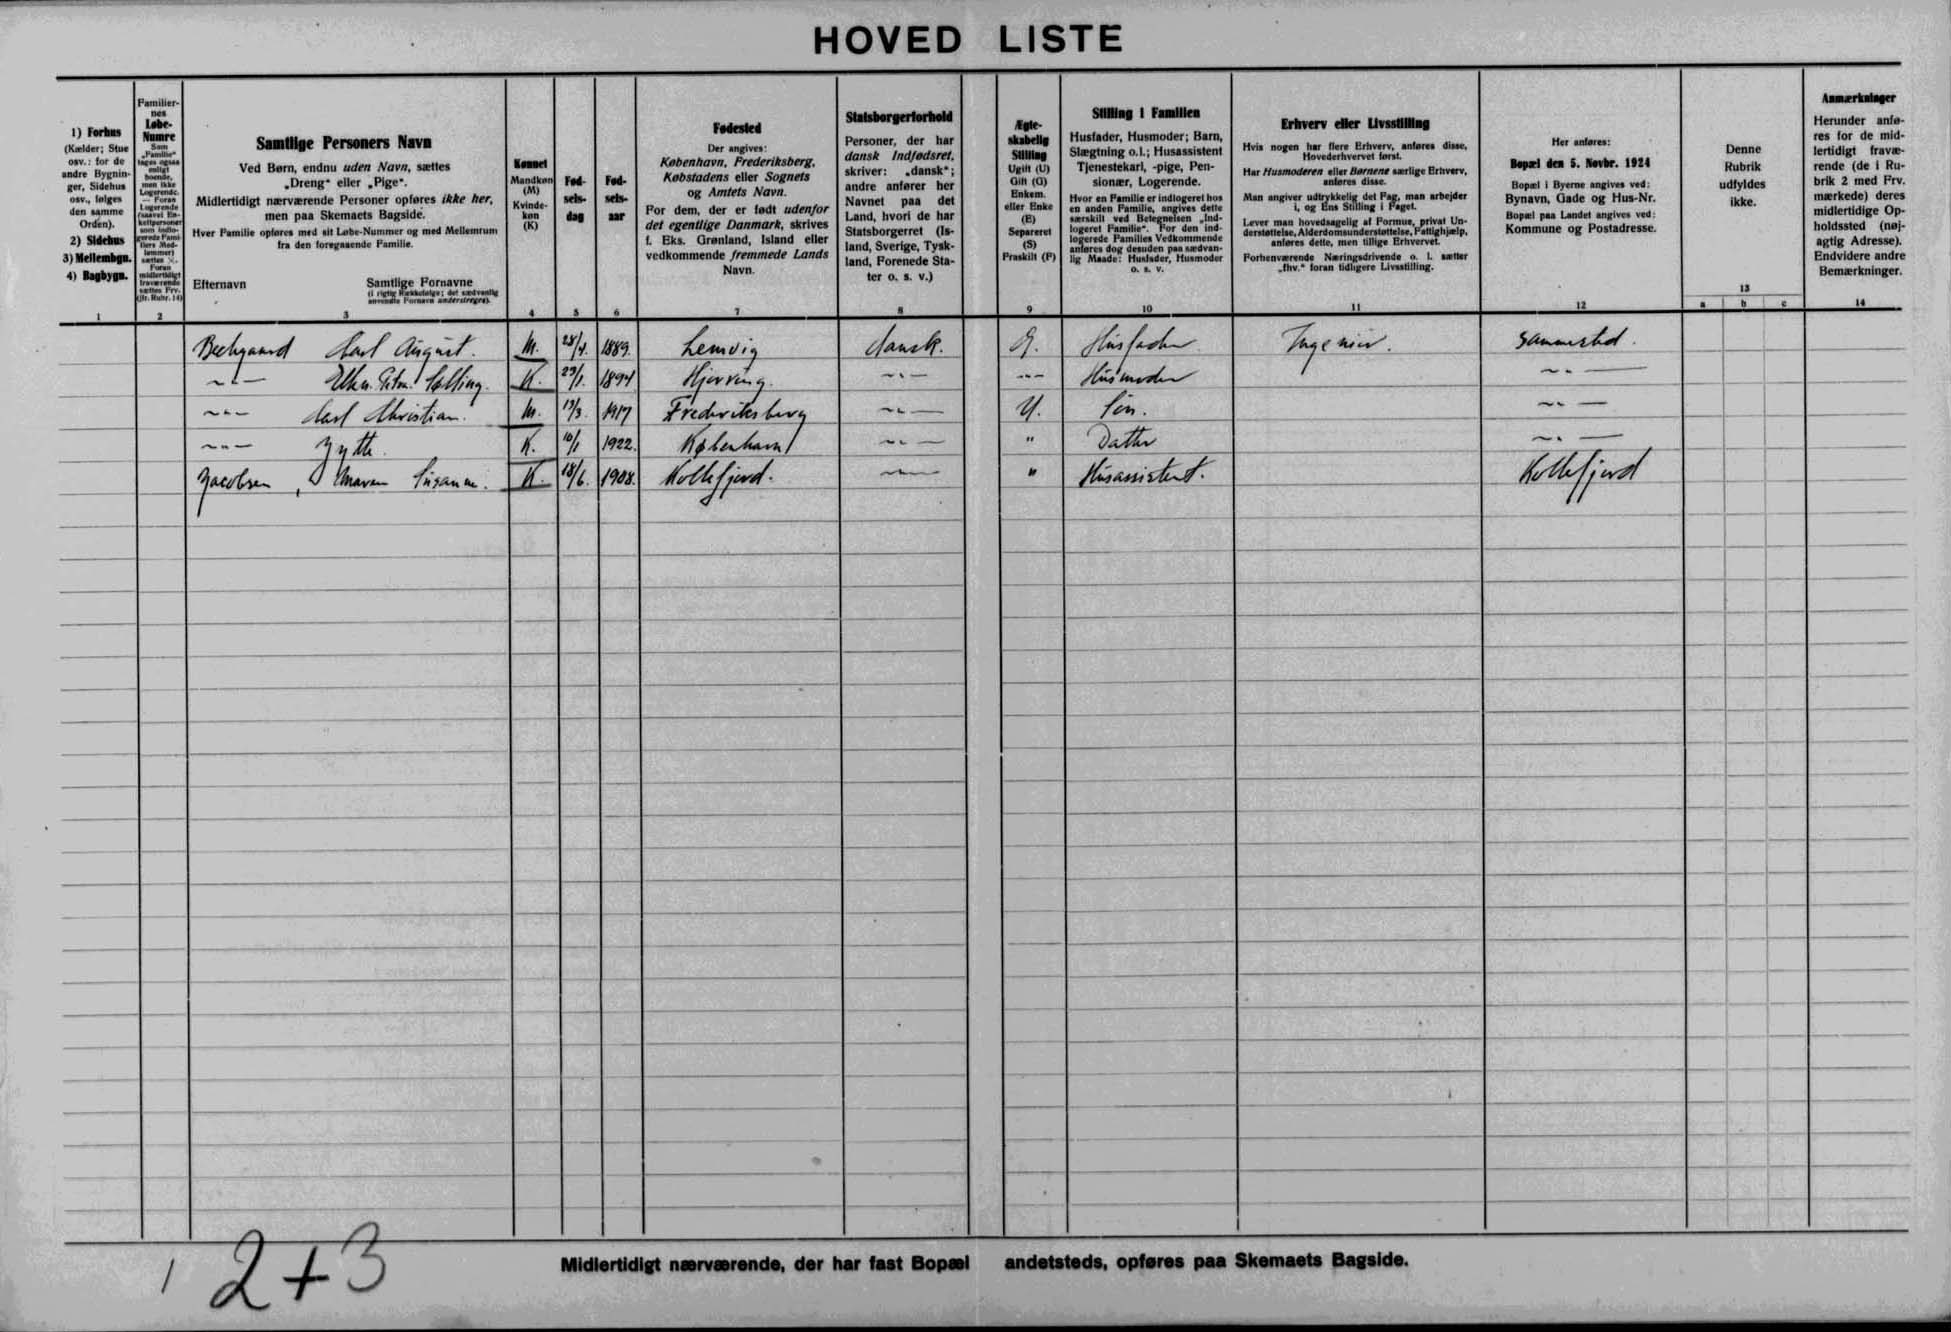 HOVED LISTE
1) Forhus
(Kælder; Stue
osv.: for de
andre Bygnin-
ger, Sidehus
osv., følges
den samme
Orden).
2) Sidehus
3) Mellembgn.
4) Bagbygn.
1
Familier-
nes
Løbe-
Numre
Som
„Familie“
tages ogsaa
enligt
boende,
men ikke
Logerende.
— Foran
Logerende
(saavel En-
keltpersoner
som indlo-
gerede Fami-
liers Med-
lemmer)
sættes ×.
Foran
midlertidigt
fraværende
sættes Frv.
(jfr. Rubr. 14)
2
Samtlige Personers Navn
Ved Børn, endnu uden Navn, sættes
„Dreng“ eller „Pige“.
Midlertidigt nærværende Personer opføres ikke her,
men paa Skemaets Bagside.
Hver Familie opføres med sit Løbe-Nummer og med Mellemrum
fra den foregaaende Familie.
Efternavn Samtlige Fornavne
(i rigtig Rækkefølge; det sædvanlig
anvendte Fornavn understreges).
3
Kønnet
Mandkøn
(M)
Kvinde-
køn
(K)
4
Fød-
sels-
dag
5
Fød-
sels-
aar
6
Fødested
Der angives:
København, Frederiksberg,
Købstadens eller Sognets
og Amtets Navn.
For dem, der er født udenfor
det egentlige Danmark, skrives
f. Eks. Grønland, Island eller
vedkommende fremmede Lands
Navn.
7
Statsborgerforhold
Personer, der har
dansk Indfødsret,
skriver: „dansk“;
andre anfører her
Navnet paa det
Land, hvori de har
Statsborgerret (Is-
land, Sverige, Tysk-
land, Forenede Sta-
ter o. s. v.)
8
Ægte-
skabelig
Stilling
Ugift (U)
Gift (G)
Enkem.
eller Enke
(E)
Separeret
(S)
Fraskilt (F)
9
Stilling i Familien
Husfader, Husmoder; Barn,
Slægtning o.l.; Husassistent
Tjenestekarl, -pige, Pen-
sionær, Logerende.
Hvor en Familie er indlogeret hos
en anden Familie, angives dette
særskilt ved Betegnelsen „Ind-
logeret Familie“. For den ind-
logerede Families Vedkommende
anføres dog desuden paa sædvan-
lig Maade: Husfader, Husmoder
o. s. v.
10
Erhverv eller Livsstilling
Hvis nogen har flere Erhverv, anføres disse,
Hovederhvervet først.
Har Husmoderen eller Børnene særlige Erhverv,
anføres disse.
Man angiver udtrykkelig det Fag, man arbejder
i, og Ens Stilling i Faget.
Lever man hovedsagelig af Formue, privat Un-
derstøttelse, Alderdomsunderstøttelse, Fattighjælp,
anføres dette, men tillige Erhvervet.
Forhenværende Næringsdrivende o. l. sætter
„fhv.“ foran tidligere Livsstilling.
11
Her anføres:
Bopæl den 5. Novbr. 1924
Bopæl i Byerne angives ved:
Bynavn, Gade og Hus-Nr.
Bopæl paa Landet angives ved:
Kommune og Postadresse.
12
Denne
Rubrik
udfyldes
ikke.
13
a b c
Anmærkninger
Herunder anfø-
res for de mid-
lertidigt fravæ-
rende (de i Ru-
brik 2 med Frv.
mærkede) deres
midlertidige Op-
holdssted (nøj-
agtig Adresse).
Endvidere andre
Bemærkninger.
14
Bechgaard Carl August. M. 28/4 1889. Lemvig dansk. G. Husfader Ingeniør. sammested.
K. 29/1. 1894 Hjørring. Husmoder
Carl Christian. M. 13/3. 1917 Frederiksberg U. Søn.
Jytte. K. 10/1 1922. København " Datter
Jacobsen, Maren Susanne. K. 18/6. 1908. Kollefjord. " Husassistent. Kollefjord
1 2+3
Midlertidigt nærværende, der har fast Bopæl andetsteds, opføres paa Skemaets Bagside.